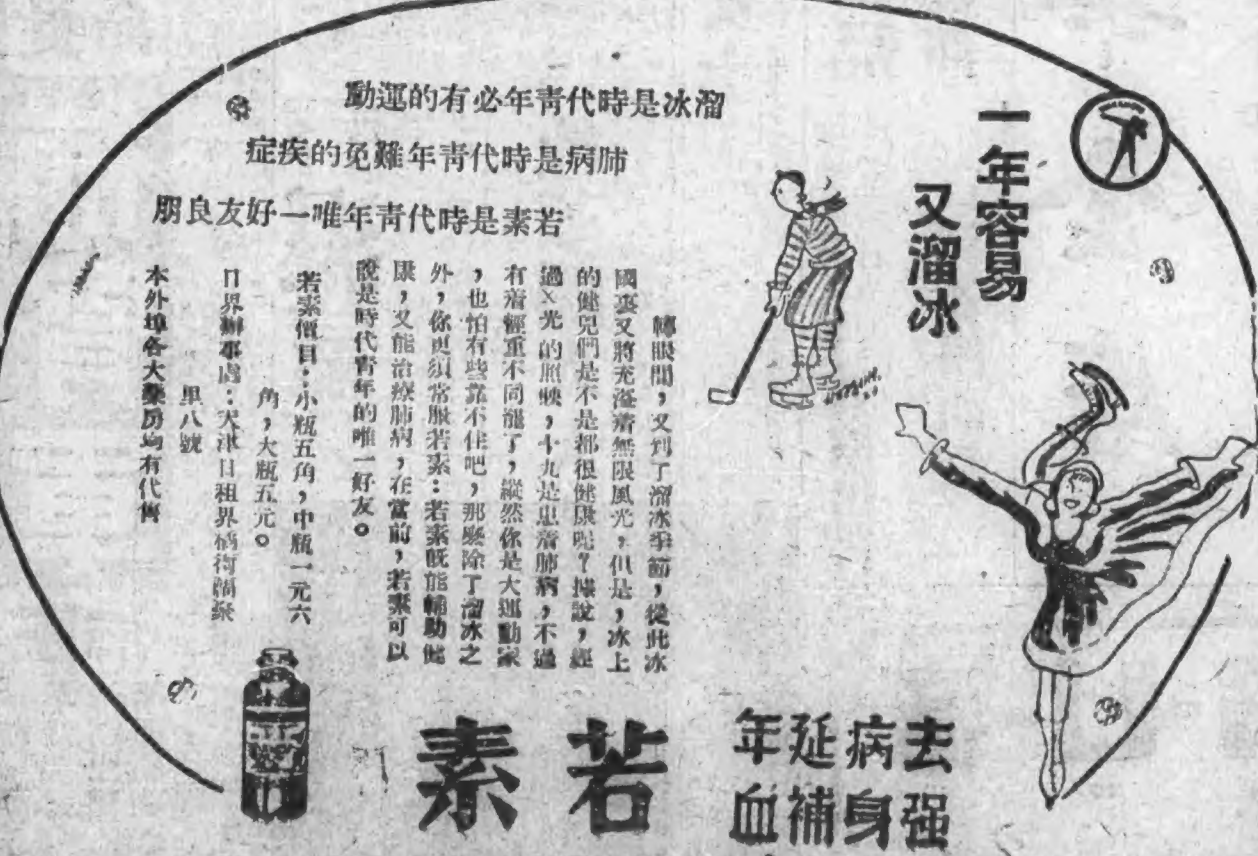 一年容易
又溜冰
溜冰是時代青年必有的運動
肺病是時代青年難免的疾症
若素是時代青年唯一好友良朋
轉眼間，又到了溜冰季節，從此冰
國裏又將充滿着無限風光，但是，冰上
的健兒們是不是都很健康呢？據說，經
過X光的照映，十九是患着肺病，不過
有着輕重不同罷了，縱然你是大運動家
，也怕有些靠不住吧，那麼除了溜冰之
外，你更須常服若素：若素旣能輔助健
康，又能治療肺病，在當前，若素可以
說是時代青年的唯一好友。
若素價目：小瓶五角，中瓶一元六
角，大瓶五元。
日界辦事處：天津日租界橘街
里八號
本外埠各大藥房均有代售
去病延年
强身補血
若素